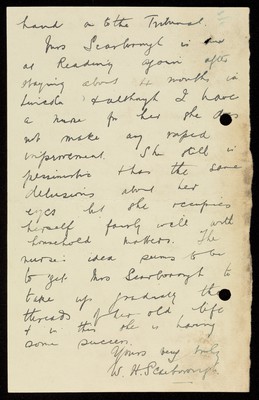 hand on to the Tribunal.
Mrs Scarborough is
at Reading again after
staying about 4 months in
Lincoln & although I have
a nurse for her she does
not make any rapid
improvement. She still is
pessimistic & has the same
delusions about her
eyes but she occupies
herself fairly well with
household matters. The
nurse's idea seems to be
to get Mrs Scarborough to
take up gradually the
threads of her old life
& in this she is having
some success.
Yours very truly
W. H. Scarborough